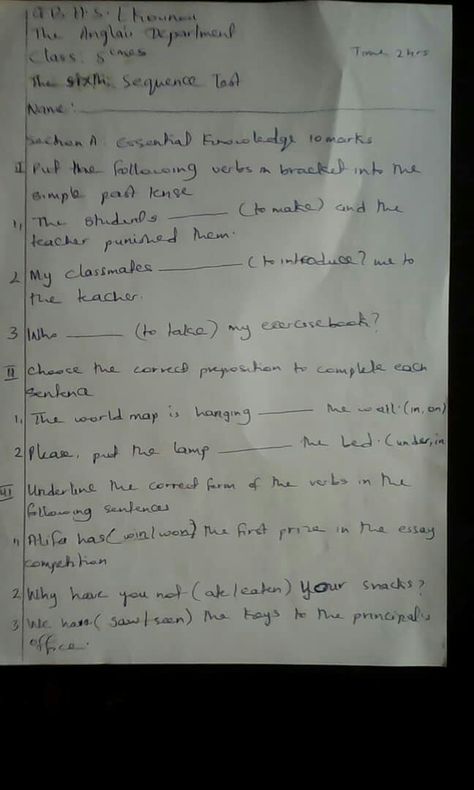 G.B.H.S.
The Anglais Department
Class: 5èmes
Time 2hrs
The sixth Sequence Test
Name:
Section A: Essential Knowledge 10marks
I Put the following verbs in bracket into the
simple past tense
1, The students ______ (to make) and the
teacher punished them.
2 My classmates ______ (to introduce) me to
the teacher.
3 Who ______ (to take) my exercisebook?
II Choose the correct preposition to complete each
sentence
1, The world map is hanging ______ the wall. (in, on)
2 Please, put the lamp ______ the bed. (under, in
III Underline the correct form of the verbs in the
following sentences
1, Alifa has (win/won) the first prize in the essay
competition
2. Why have you not (ate/eaten) your snacks?
3 We have (saw/seen) the keys to the principal's
office.